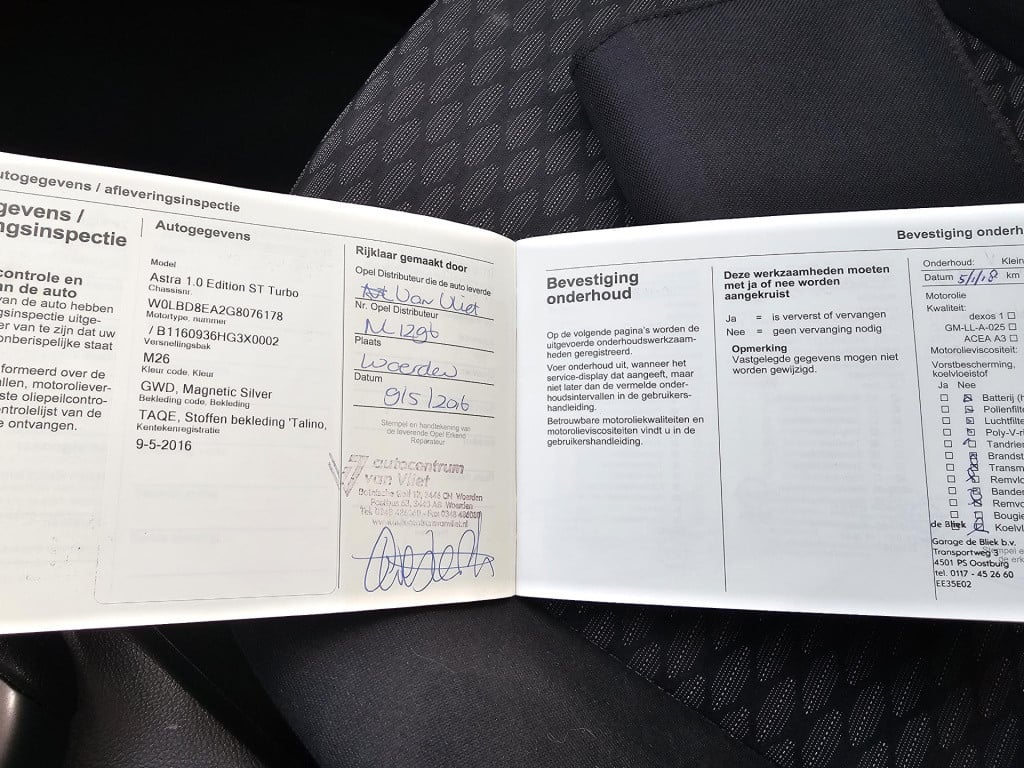 utogegevens / afleveringsinspectie
gevens /
ngsinspectie
controle en
an de auto
van de auto hebben
gsinspectie uitge-
er van te zijn dat uw
onberispelijke staat
formeerd over de
allen, motoliever-
ste oliepeilcontro-
ntrolelijst van de
e ontvangen.
Autogegevens
Model
Astra 1.0 Edition ST Turbo
Chassisnr.
W0LBD8EA2G8076178
Motortype. nummer
/ B1160936HG3X0002
Versnellingsbak
M26
Kleur code, Kleur
GWD, Magnetic Silver
Bekleding code, Bekleding
TAQE, Stoffen bekleding 'Talino,
Kentekenregistratie
9-5-2016
Rijklaar gemaakt door
Opel Distributeur die de auto leverde
Van Vliet
Nr. Opel Distributeur
N1296
Plaats
Woerden
Datum
9/5/2016
Stempel en handtekening van
de leverende Opel Erkend
Reparateur
autocentrum
van Vliet
Woerden
Woerden
Bevestiging
onderhoud
Op de volgende pagina's worden de
uitgevoerde onderhoudswerkzaam-
heden geregistreerd.
Voer onderhoud uit, wanneer het
service-display dat aangeeft, maar
niet later dan de vermelde onder-
houdsintervallen in de gebruikers-
handleiding.
Betrouwbare motoroliekwaliteiten en
motorolieviscositeiten vindt u in de
gebruikershandleiding.
Deze werkzaamheden moeten
met ja of nee worden
aangekruist
Ja = is ververst of vervangen
Nee = geen vervanging nodig
Opmerking
Vastgelegde gegevens mogen niet
worden gewijzigd.
Bevestiging onderh
Onderhoud: Klein
Datum 5/1/18 km
Motorolie
Kwaliteit:
dexos 1
GM-LL-A-025
ACEA A3
Motorolieviscositeit:
Vorstbescherming,
koelvloeistof
Ja Nee
Batterij (h
Pollenfilte
Luchtfilte
Poly-V-ri
Tandrie
Brandst
Transm
Remvlo
Bander
Remvo
Bougie
Koelvl
de Bliek
Garage de Bliek b.v.
Transportweg 3
4501 PS Oostburg
tel. 0117 - 45 26 60
EE35E02